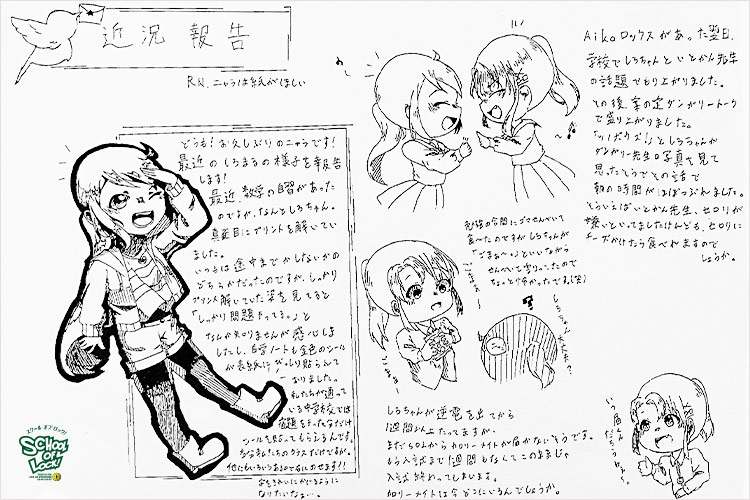 近況報告
RN.ニャラは紙がほしい
どうも!お久しぶりのニャラです!
最近のしろまるの様子を報告
します!
最近、数学の自習があった
のですが、なんとしろちゃん。
真面目にプリントを解いてい
ました。
いつもは途中までかしないかの
どちらかだったのですが、しっかり
プリント解いていた姿を見てると
「しっかり問題だってる。」と
なんか知りませんが感心しま
したし、自学ノートも金色のシール
が表紙にがっしり貼らんて
おりました。
私たちが通って
いる中学校では
宿題をやったなだけ
シールを貼ってもらえるんです。
AikoロックスがあTた翌日、
学校でしろちゃんといとかん先生
の話題でもり上がりました。
その後、案の定ダンガリートーク
で盛り上がりました。
しろちゃんが
ダンガリー先生の写真を見て
思ったそうでその話で
朝の時間がほぼつぶれました。
そういえばいとかん先生、セロリが
嫌いといってましたけんども、セロリに
チーズかけたら食べれますで
しょうか。
勉強の合間にゴマせんべいて
食べたのですがしろちゃんが
「ごまぁ〜」といいながら
せんべい割りってたので
ちょっと怖かったです。(笑)
?
しろちゃん
しろちゃんが逆電を出てから
1週間が上たってますが、
まだSOLからカロリーメイトが届かないそうです。
もう入試まで1週間もなくてこのままじゃ
入試終わってしまいます。
カロリーメイトは今どこにいるんでしょうか。
いつ届くん
だろうねぇ。
スクール オブ ロック!
SCHOOL
OF
LOCK!